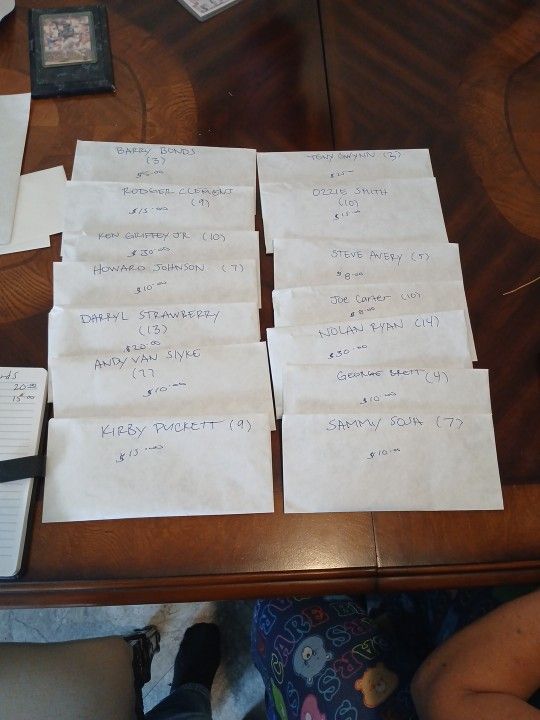 BARRY BONDS
(3)
RODGER CLEMENT
(9)
$15.00
KEN GRIFFEY JR. (10)
$30.00
HOWARD JOHNSON (7)
$10.00
DARRYL STRAWBERRY
(13)
$20.00
ANDY VAN SLYKE
$10.00
KIRBY PUCKETT (9)
$15.00
TONY GWYNN (3)
OZZIE SMITH
(10)
$15.00
STEVE AVERY (5)
$8.00
JOE Carter (10)
NOLAN RYAN (14)
$30.00
GEORGE BRETT (4)
$10.00
SAMMY SOSA (7)
$10.00
rds
20.00
15.00